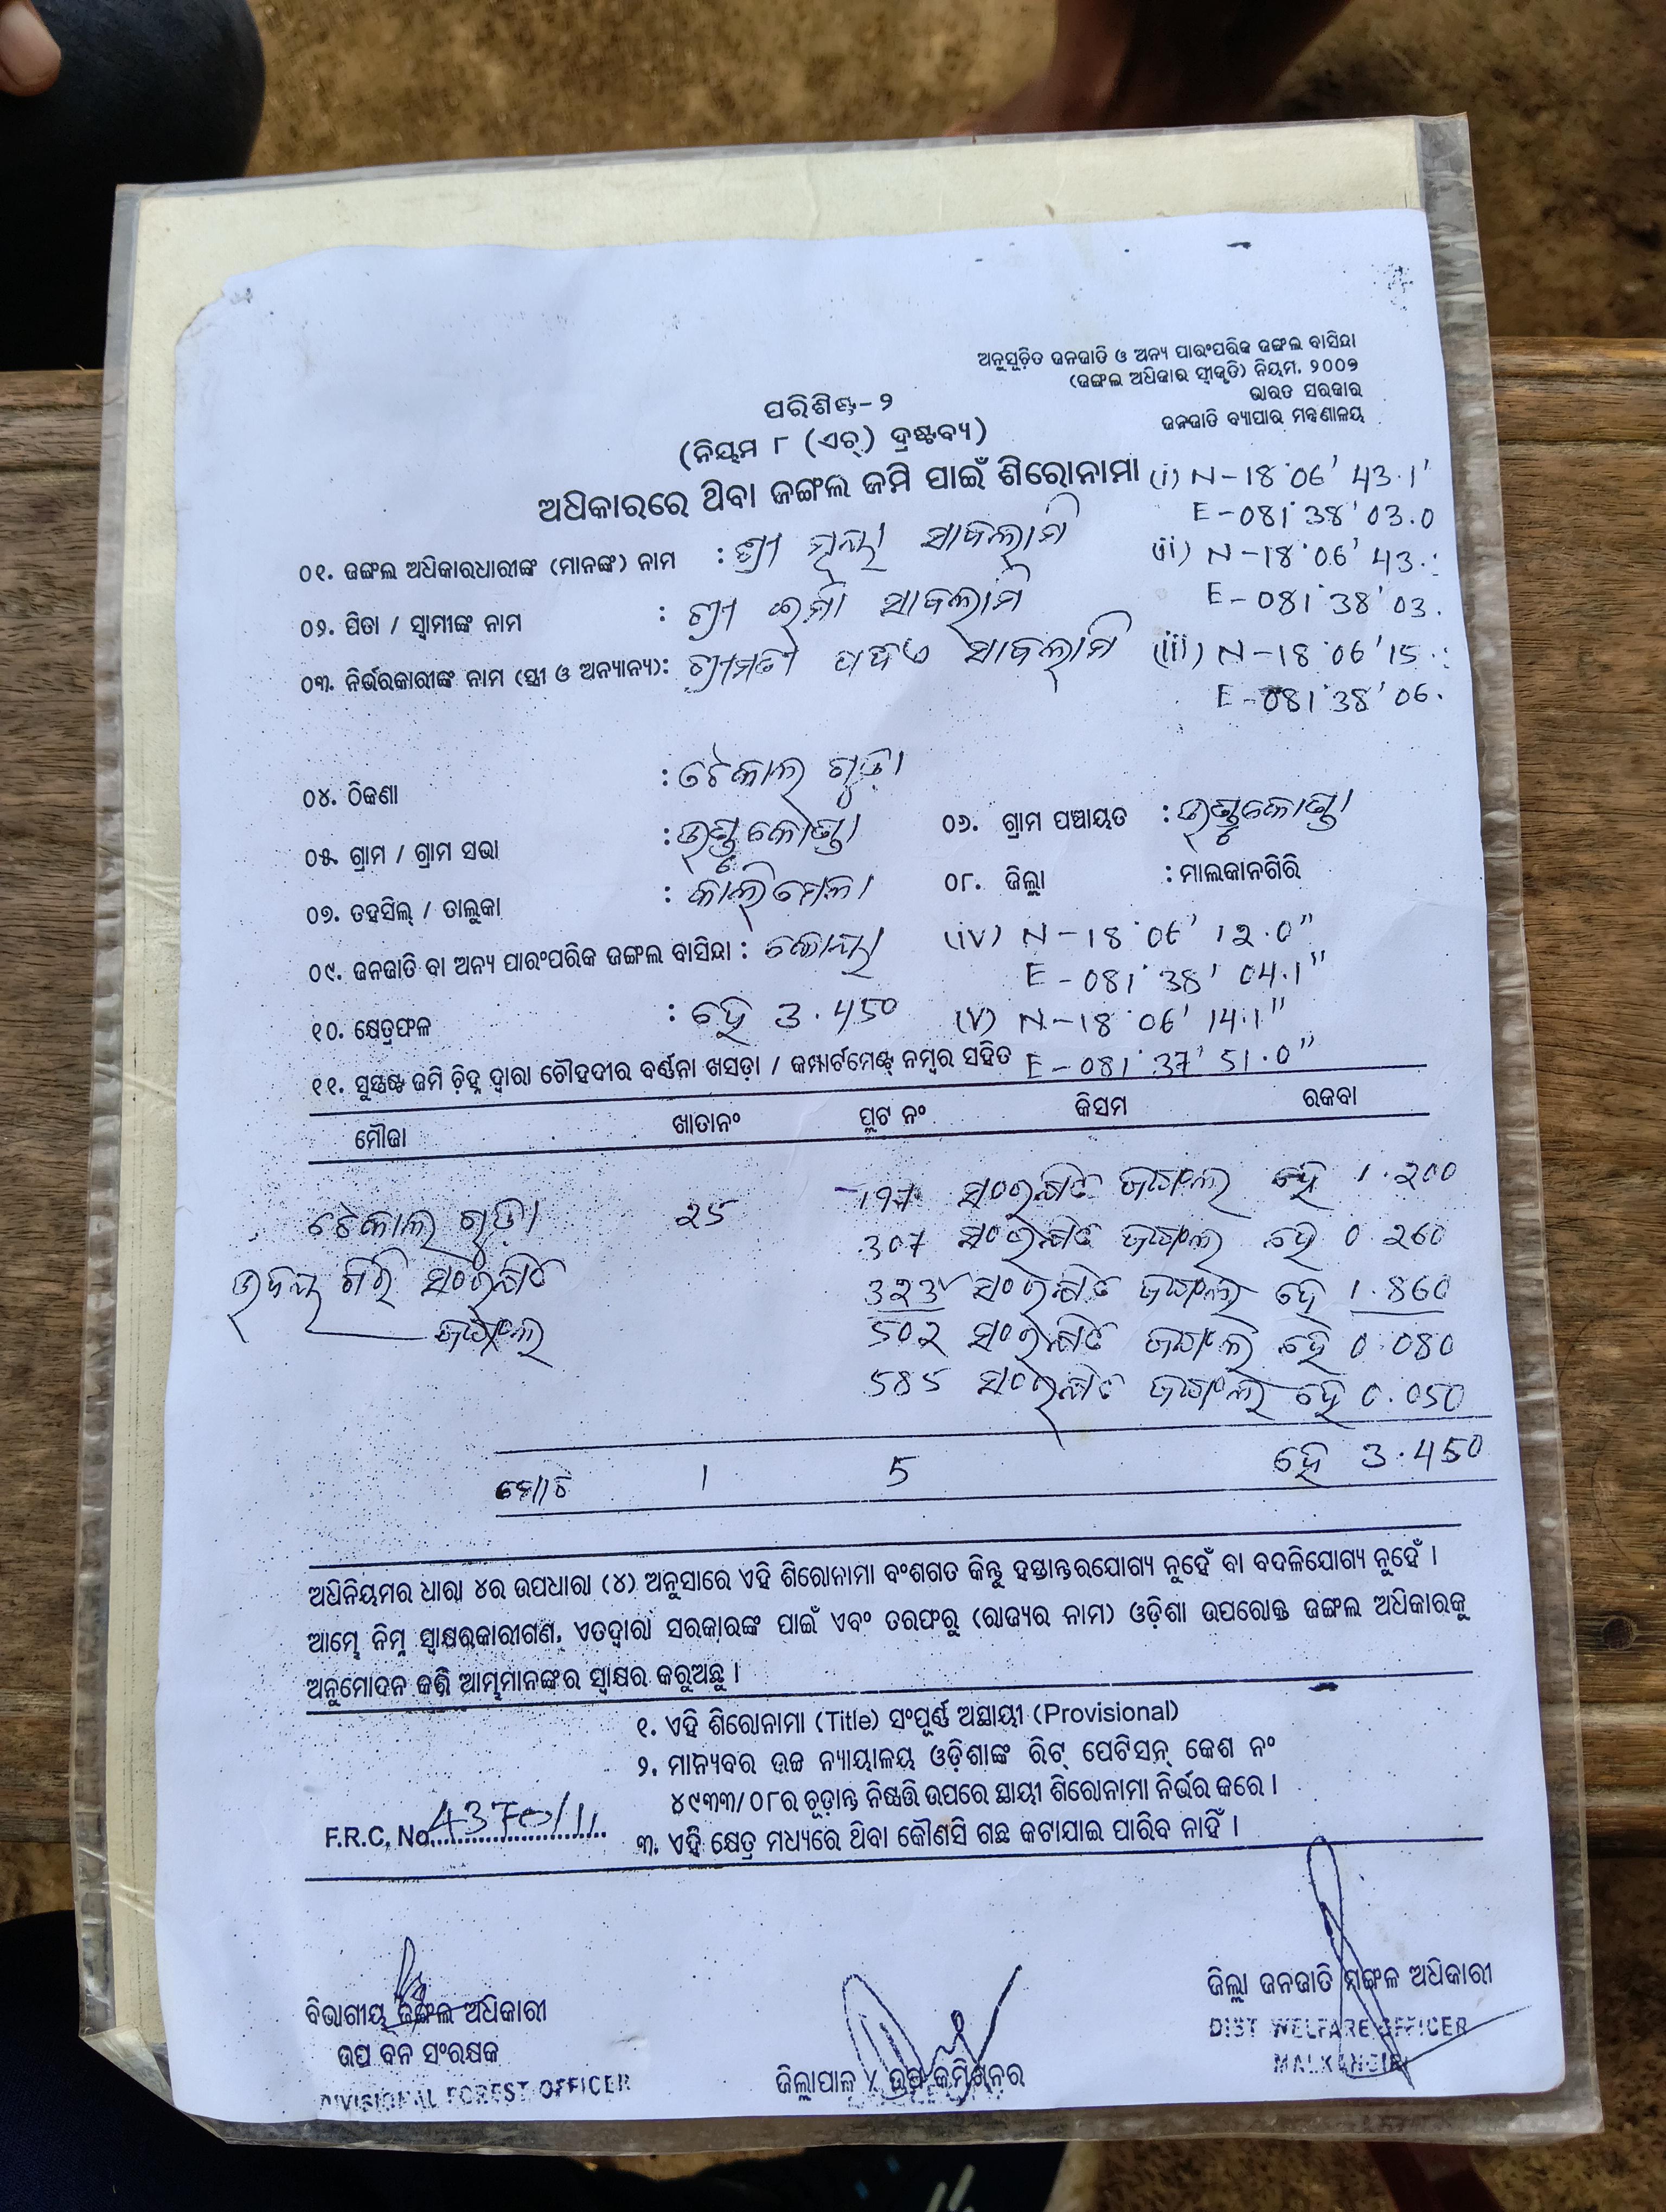 ଅନୁସୂଚିତ ଜନଜାତି ଓ ଅନ୍ୟ ପାରଂପରିକ ଜଙ୍ଗଲ ବାସିନ୍ଦା
(ଜଙ୍ଗଲ ଅଧିକାର ସ୍ୱୀକୃତି) ନିୟମ, ୨୦୦୭
ଭାରତ ସରକାର
ଜନଜାତି ବ୍ୟାପାର ମନ୍ତ୍ରଣାଳୟ
ପରିଶିଷ୍ଟ-୨
(ନିୟମ ୮ (ଏଚ୍) ଦ୍ରଷ୍ଟବ୍ୟ)
ଅଧିକାରରେ ଥିବା ଜଙ୍ଗଲ ଜମି ପାଇଁ ଶିରୋନାମା
(i) N-18°06' 43.1'
E-081°38'03.0
୦୧. ଜଙ୍ଗଲ ଅଧିକାରଧାରୀଙ୍କ (ମାନଙ୍କ) ନାମ : ଶ୍ରୀ ସାବଲାମି
(ii) N-18°06' 43.
E-081°38'03.
୦୨. ପିତା / ସ୍ୱାମୀଙ୍କ ନାମ : ଶ୍ରୀ ଇର୍ମା ସାବଲାମି
୦୩. ନିର୍ଭରକାରୀଙ୍କ ନାମ (ସ୍ତ୍ରୀ ଓ ଅନ୍ୟାନ୍ୟ): ଶ୍ରୀମତୀ ସାବଲାମି
(iii) N-18°06'15.
E-081°38'06.
୦୪. ଠିକଣା : ଟେକାଲ ଗୁଡ଼ା
୦୫. ଗ୍ରାମ / ଗ୍ରାମ ସଭା :
୦୬. ଗ୍ରାମ ପଞ୍ଚାୟତ :
୦୭. ତହସିଲ୍ / ତାଲୁକା : କାଲିମେଲା
୦୮. ଜିଲ୍ଲା : ମାଲକାନଗିରି
୦୯. ଜନଜାତି ବା ଅନ୍ୟ ପାରଂପରିକ ଜଙ୍ଗଲ ବାସିନ୍ଦା : କୋୟା
(iv) N-18°06' 12.0"
E-081°38' 04.1"
୧୦. କ୍ଷେତ୍ରଫଳ : ହେ 3.450
(v) N-18°06' 14.1"
E-081°37' 51.0"
୧୧. ସୁସ୍ପଷ୍ଟ ଜମି ଚିହ୍ନ ଦ୍ୱାରା ଚୌହଦୀର ବର୍ଣ୍ଣନା ଖସଡ଼ା / କମ୍ପାର୍ଟମେଣ୍ଟ୍ ନମ୍ବର ସହିତ
ମୌଜା ଖାତାନଂ ପ୍ଲଟ ନଂ କିସମ ରକବା
ଟେକାଲ ଗୁଡ଼ା 25 197 ସଂରକ୍ଷିତ ଜଙ୍ଗଲ ହେ 1.200
307 ସଂରକ୍ଷିତ ଜଙ୍ଗଲ ହେ 0.260
ଗିରି ସଂରକ୍ଷିତ 323 ସଂରକ୍ଷିତ ଜଙ୍ଗଲ ହେ 1.860
ଜଙ୍ଗଲ 502 ସଂରକ୍ଷିତ ଜଙ୍ଗଲ ହେ 0.080
585 ସଂରକ୍ଷିତ ଜଙ୍ଗଲ ହେ 0.050
ମୋଟ 1 5 ହେ 3.450
ଅଧିନିୟମର ଧାରା ୪ର ଉପଧାରା (୪) ଅନୁସାରେ ଏହି ଶିରୋନାମା ବଂଶଗତ କିନ୍ତୁ ହସ୍ତାନ୍ତରଯୋଗ୍ୟ ନୁହେଁ ବା ବଦଳିଯୋଗ୍ୟ ନୁହେଁ ।
ଆମ୍ଭେ ନିମ୍ନ ସ୍ୱାକ୍ଷରକାରୀଗଣ, ଏତଦ୍ୱାରା ସରକାରଙ୍କ ପାଇଁ ଏବଂ ତରଫରୁ (ରାଜ୍ୟର ନାମ) ଓଡ଼ିଶା ଉପରୋକ୍ତ ଜଙ୍ଗଲ ଅଧିକାରକୁ
ଅନୁମୋଦନ କରି ଆମ୍ଭମାନଙ୍କର ସ୍ୱାକ୍ଷର କରୁଅଛୁ ।
୧. ଏହି ଶିରୋନାମା (Title) ସଂପୂର୍ଣ୍ଣ ଅସ୍ଥାୟୀ (Provisional)
୨. ମାନ୍ୟବର ଉଚ୍ଚ ନ୍ୟାୟାଳୟ ଓଡ଼ିଶାଙ୍କ ରିଟ୍ ପେଟିସନ୍ କେଶ ନଂ
୪୯୩୩/୦୮ର ଚୂଡ଼ାନ୍ତ ନିଷ୍ପତ୍ତି ଉପରେ ସ୍ଥାୟୀ ଶିରୋନାମା ନିର୍ଭର କରେ ।
F.R.C, No. 4370/11
୩. ଏହି କ୍ଷେତ୍ର ମଧ୍ୟରେ ଥିବା କୌଣସି ଗଛ କଟାଯାଇ ପାରିବ ନାହିଁ ।
ବିଭାଗୀୟ ଜଙ୍ଗଲ ଅଧିକାରୀ
ଉପ ବନ ସଂରକ୍ଷକ
DIVISIONAL FOREST OFFICER
ଜିଲ୍ଲାପାଳ / ଉପ କମିଶନର
ଜିଲ୍ଲା ଜନଜାତି ମଙ୍ଗଳ ଅଧିକାରୀ
DIST WELFARE OFFICER
MALKANGIRI